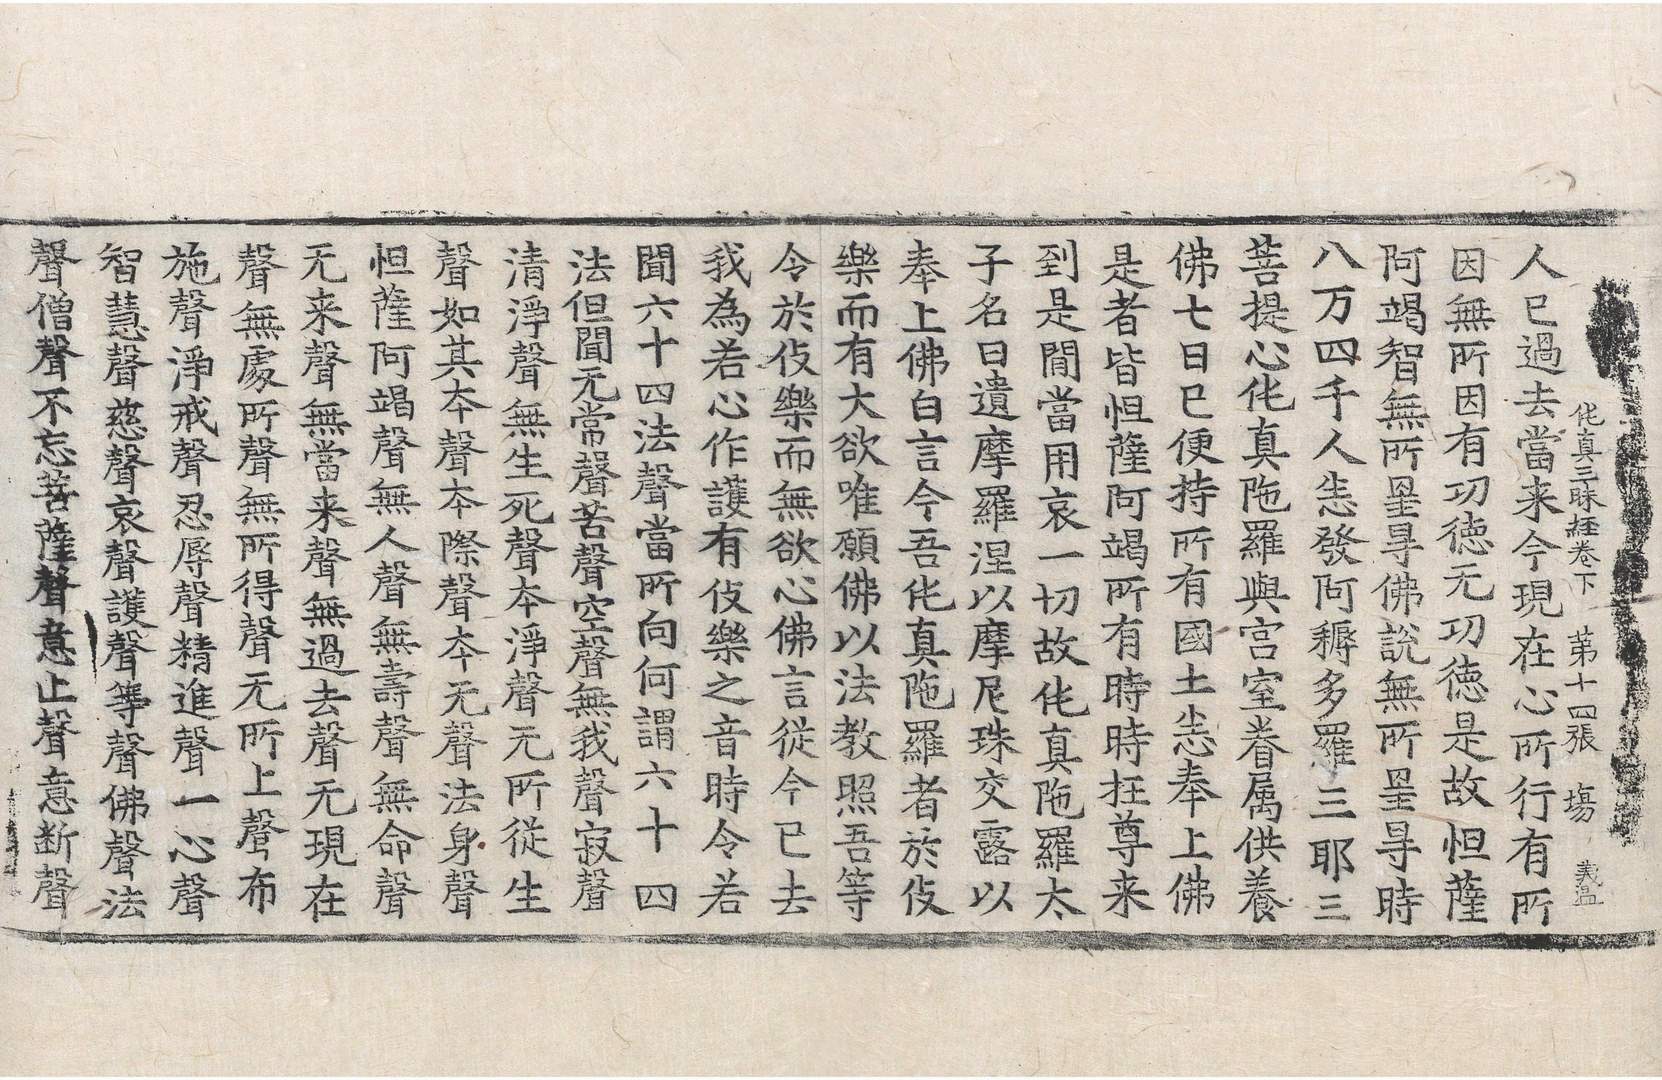 佗真三昧経卷下　第十四張　塲　義温
人已過去當来今現在心所行有所
因無所因有功徳无功徳是故怛薩
阿竭智無所罣㝵佛說無所罣㝵時
八万四千人悉發阿耨多羅三耶三
菩提心佗真陁羅與宫室眷属供養
佛七日已便持所有國土悉奉上佛
是者皆怛薩阿竭所有時時抂尊来
到是閒當用哀一切故佗真陁羅太
子名曰遺摩羅涅以摩尼珠交露以
奉上佛白言今吾佗真陁羅者於伎
樂而有大欲唯願佛以法教照吾等
令於伎樂而無欲心佛言従今已去
我為若心作護有伎樂之音時令若
聞六十四法聲當所向何謂六十四
法但聞无常聲苦聲空聲無我聲寂聲
清淨聲無生死聲夲淨聲元所従生
聲如其夲聲夲際聲夲无聲法身聲
怛薩阿竭聲無人聲無壽聲無命聲
无来聲無當来聲無過去聲无現在
聲無處所聲無所得聲无所上聲布
施聲淨戒聲忍辱聲精進聲一心聲
智慧聲慈聲哀聲護聲等聲佛聲法
聲僧聲不忘菩薩聲意止聲意断聲